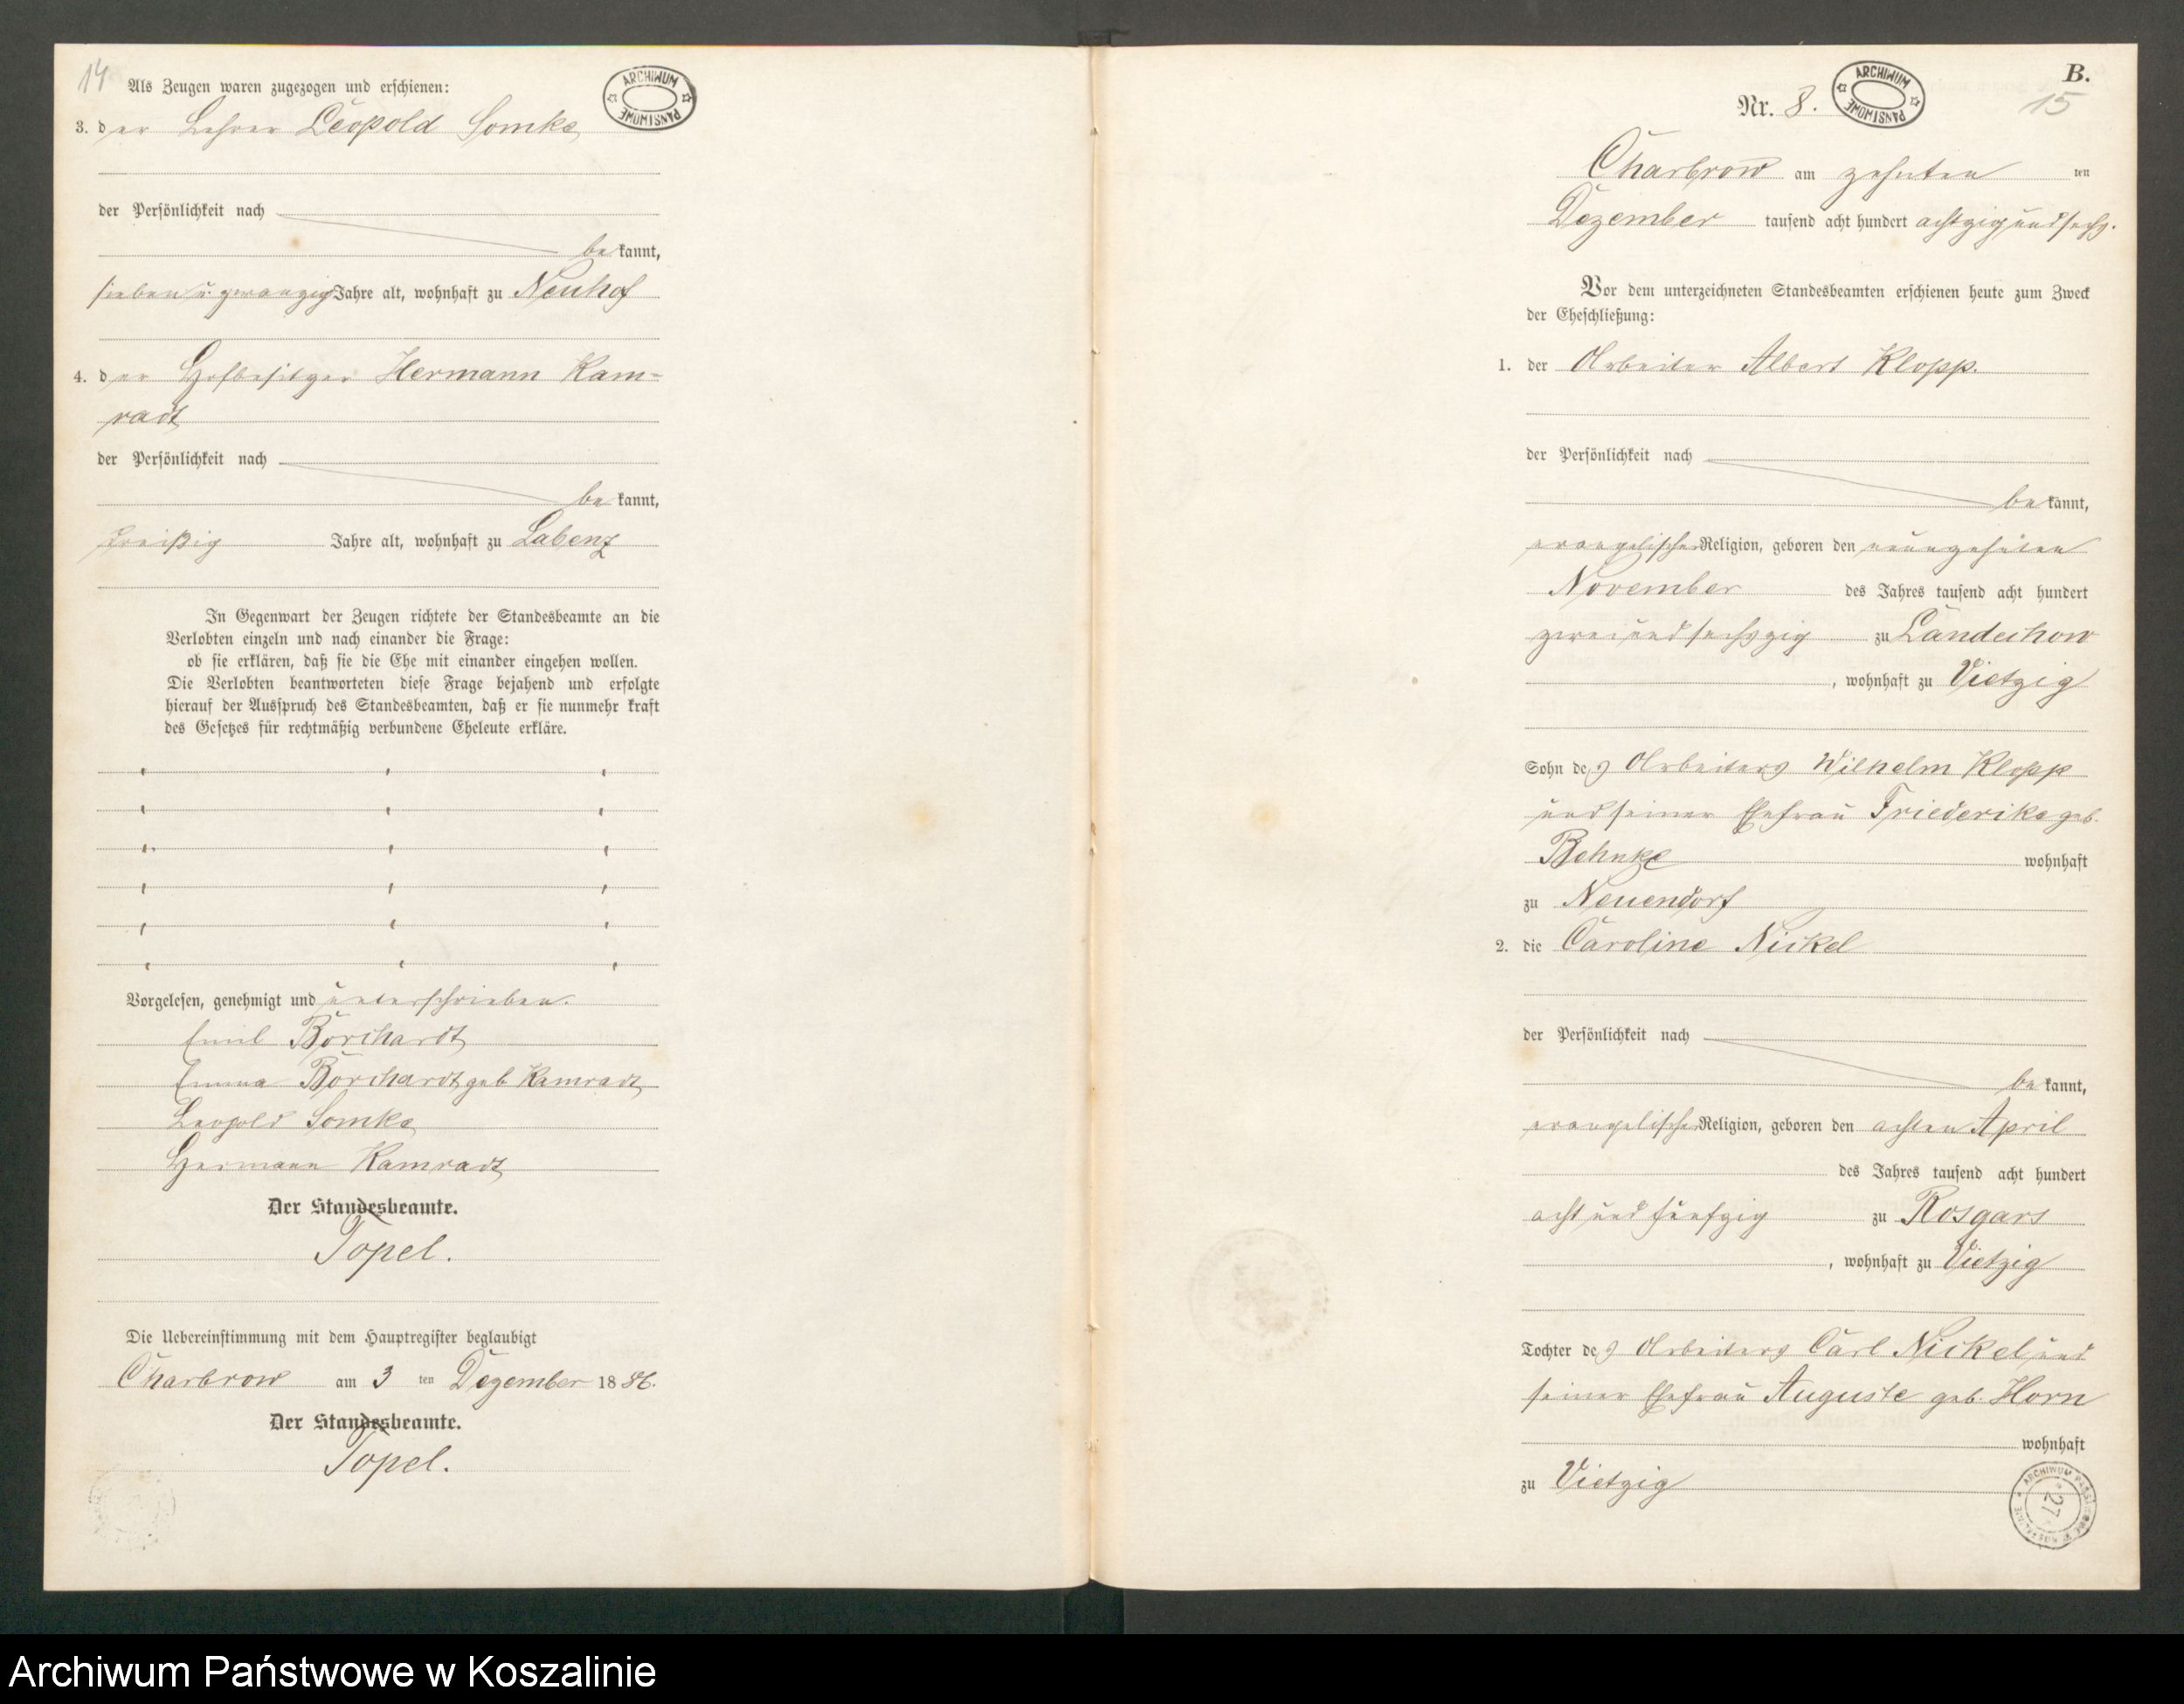 14
Als Zeugen waren zugezogen und erschienen:
ARCHIWUM PAŃSTWOWE
3. der Lehrer Leopold Somke
der Persönlichkeit nach
bekannt,
sieben u. zwanzig Jahre alt, wohnhaft zu Neuhof
4. der Hofbesitzer Hermann Kam-
radt
der Persönlichkeit nach
bekannt,
dreißig Jahre alt, wohnhaft zu Labenz
In Gegenwart der Zeugen richtete der Standesbeamte an die
Verlobten einzeln und nach einander die Frage:
ob sie erklären, daß sie die Ehe mit einander eingehen wollen.
Die Verlobten beantworteten diese Frage bejahend und erfolgte
hierauf der Ausspruch des Standesbeamten, daß er sie nunmehr kraft
des Gesetzes für rechtmäßig verbundene Eheleute erkläre.
Vorgelesen, genehmigt und unterschrieben.
Emil Borchardt
Emma Borchardt geb Kamradt
Leopold Somke
Hermann Kamradt
Der Standesbeamte.
Topel.
Die Uebereinstimmung mit dem Hauptregister beglaubigt
Charbrow am 3 ten Dezember 1886.
Der Standesbeamte.
Topel.
B.
15
Nr. 8.
ARCHIWUM PAŃSTWOWE
Charbrow am zehnten ten
Dezember tausend acht hundert achtzig und sechs.
Vor dem unterzeichneten Standesbeamten erschienen heute zum Zweck
der Eheschließung:
1. der Arbeiter Albert Klopp.
der Persönlichkeit nach
bekannt,
evangelischer Religion, geboren den neunzehnten
November des Jahres tausend acht hundert
zwei und sechszig zu Landechow
, wohnhaft zu Vietzig
Sohn des Arbeiters Wilhelm Klopp
und seiner Ehefrau Friederike geb.
Behnke wohnhaft
zu Neuendorf
2. die Caroline Nickel
der Persönlichkeit nach
bekannt,
evangelischer Religion, geboren den achten April
des Jahres tausend acht hundert
acht und fünfzig zu Rosgars
, wohnhaft zu Vietzig
Tochter des Arbeiters Carl Nickel und
seiner Ehefrau Auguste geb. Horn
wohnhaft
zu Vietzig
ARCHIWUM PAŃSTWOWE W KOSZALINIE
27
Archiwum Państwowe w Koszalinie